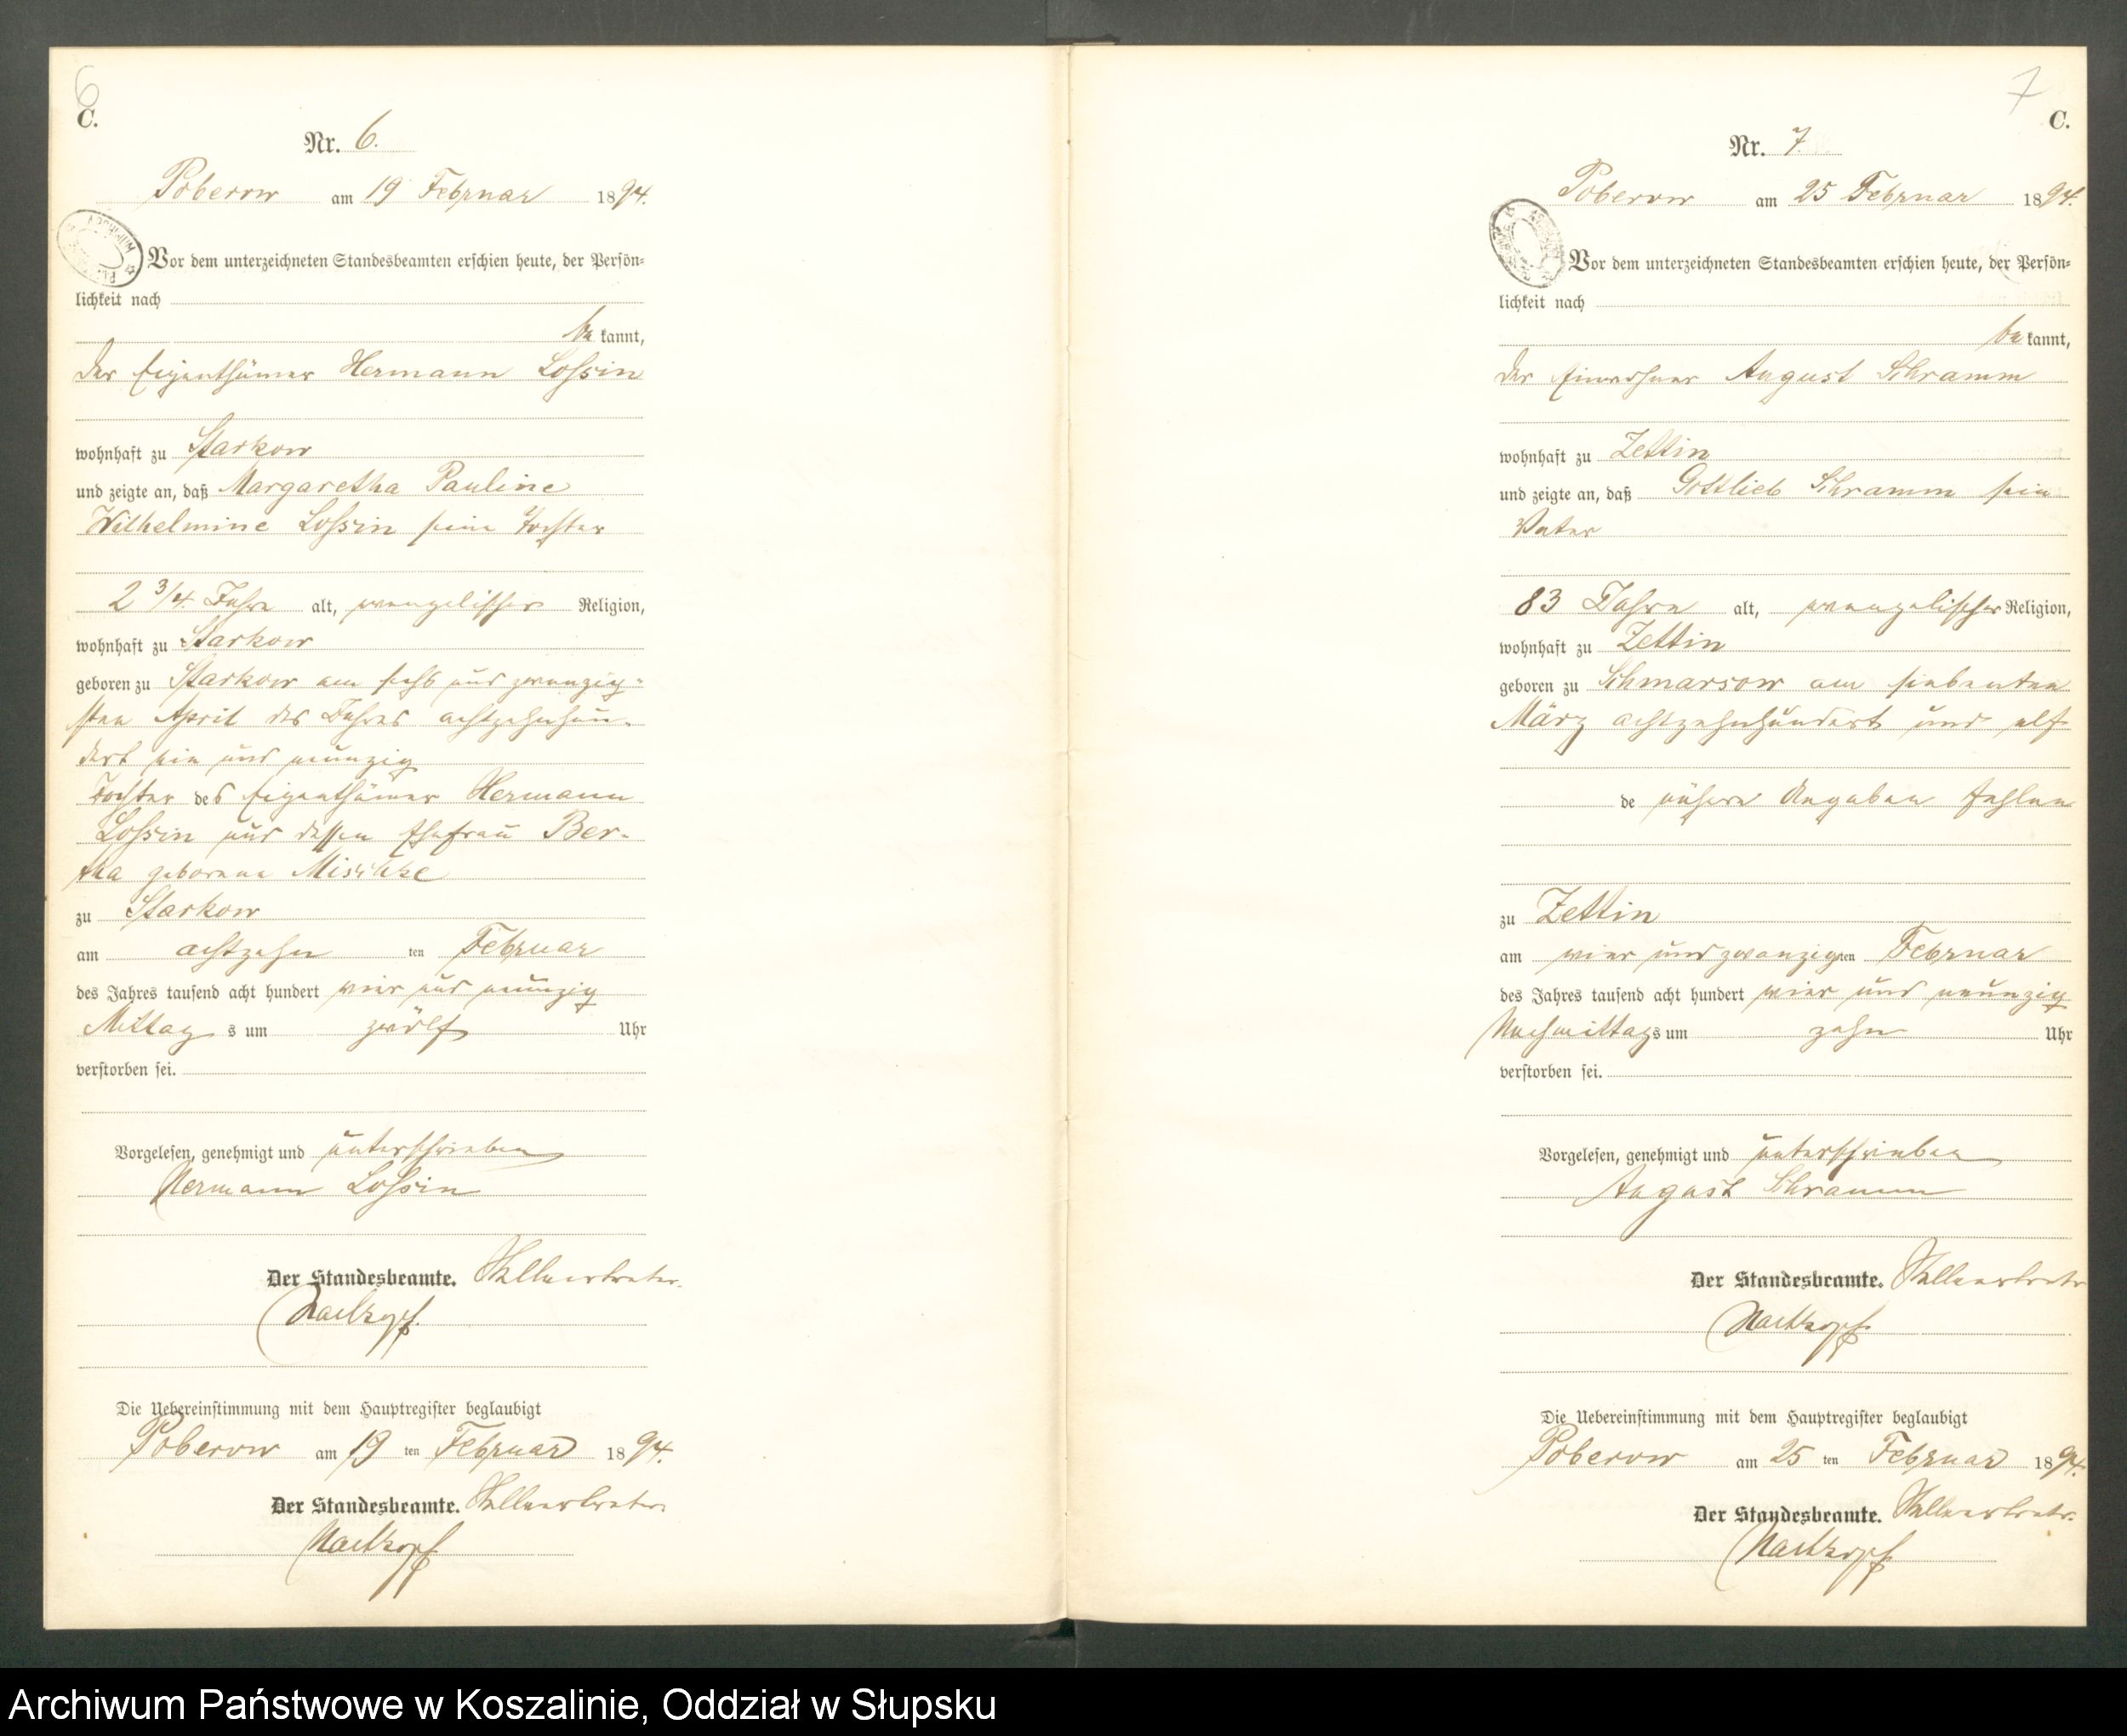 6
C.
Nr. 6.
Poberow am 19 Februar 1894.
Vor dem unterzeichneten Standesbeamten erschien heute, der Persön-
lichkeit nach
be kannt,
der Eigenthümer Hermann Lossin
wohnhaft zu Starkow
und zeigte an, daß Margaretha Pauline
Wilhelmine Lossin seine Tochter
2 3/4 Jahre alt, evangelischer Religion,
wohnhaft zu Starkow
geboren zu Starkow am sechs und zwanzig-
sten April des Jahres achtzehnhun-
dert ein und neunzig
Tochter des Eigenthümer Hermann
Lossin und dessen Ehefrau Ber-
tha geborene Mischke
zu Starkow
am achtzehn ten Februar
des Jahres tausend acht hundert vier und neunzig
Mittag s um zwölf Uhr
verstorben sei.
Vorgelesen, genehmigt und unterschrieben
Hermann Lossin
Der Standesbeamte. Stellvertreter.
Die Uebereinstimmung mit dem Hauptregister beglaubigt
Poberow am 19 ten Februar 1894.
Der Standesbeamte. Stellvertreter.
7
C.
Nr. 7.
Poberow am 25 Februar 1894.
Vor dem unterzeichneten Standesbeamten erschien heute, der Persön-
lichkeit nach
be kannt,
der Einwohner August Schramm
wohnhaft zu Zettin
und zeigte an, daß Gottlieb Schramm sein
Vater
83 Jahre alt, evangelischer Religion,
wohnhaft zu Zettin
geboren zu Schmarsow am siebenten
März achtzehnhundert und elf
de nähere Angaben fehlen
zu Zettin
am vier und zwanzig ten Februar
des Jahres tausend acht hundert vier und neunzig
Nachmittag s um zehn Uhr
verstorben sei.
Vorgelesen, genehmigt und unterschrieben
August Schramm
Der Standesbeamte. Stellvertretr
Die Uebereinstimmung mit dem Hauptregister beglaubigt
Poberow am 25 ten Februar 1894.
Der Standesbeamte. Stellvertretr.
Archiwum Państwowe w Koszalinie, Oddział w Słupsku